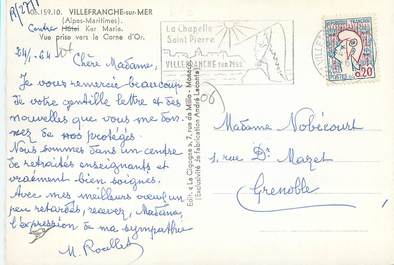 06.159.10. VILLEFRANCHE-sur-MER
(Alpes-Maritimes).
Centre Hôtel Ker Maris.
Vue prise vers la Corne d'Or.
24/1-64
Chère Madame,
Je vous remercie beaucoup
de votre gentille lettre et des
nouvelles que vous me don-
nez de nos protégés.
Nous sommes dans un centre
de retraités enseignants et
vraiment bien soignés.
Avec mes meilleurs voeux un
peu retardés, recevez, Madame,
l'expression de ma sympathie
M. Roullet
Edit. « La Cigogne », 7, rue de Millo - Monaco
(Exclusivité de fabrication André Leconte)
La Chapelle
Saint Pierre
VILLEFRANCHE sur Mer
0,20
Madame Nobécourt
1, rue Dr Mazet
Grenoble